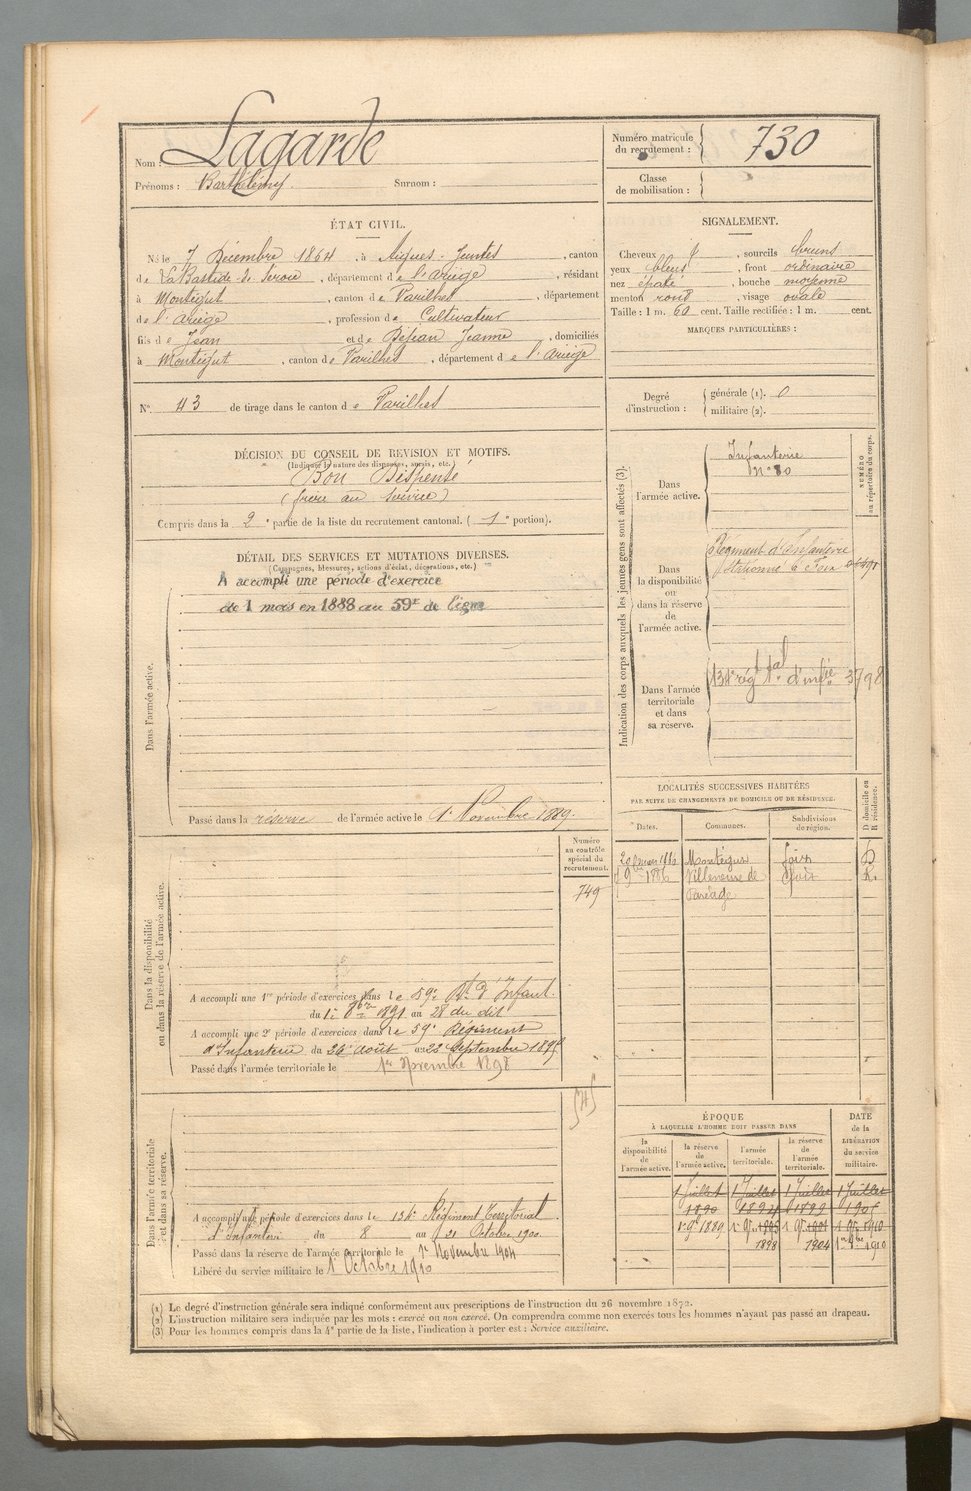 Nom : Lagarde
Prénoms : Barthélémy. Surnom :
Numéro matricule du recrutement : 730
Classe de mobilisation :
ÉTAT CIVIL.
Né le 7 Décembre 1864, à Aigues-Juntes, canton
de La Bastide-de-Sérou, département de l'Ariège, résidant
à Montégut, canton de Varilhes, département
de l'Ariège, profession de Cultivateur
fils de Jean et de Jeanne, domiciliés
à Montégut, canton de Varilhes, département de l'Ariège
SIGNALEMENT.
Cheveux, sourcils bruns
yeux bleus, front ordinaire
nez épaté, bouche moyenne
menton rond, visage ovale
Taille : 1 m. 60 cent. Taille rectifiée : 1 m. cent.
MARQUES PARTICULIÈRES :
N° 43 de tirage dans le canton de Varilhes
Degré d'instruction : générale (1). 0
militaire (2).
DÉCISION DU CONSEIL DE REVISION ET MOTIFS.
(Indiquer la nature des dispenses, sursis, etc.)
Bon Dispensé
(frère au service)
Compris dans la 2e partie de la liste du recrutement cantonal. (1e portion).
DÉTAIL DES SERVICES ET MUTATIONS DIVERSES.
(Campagnes, blessures, actions d'éclat, décorations, etc.)
A accompli une période d'exercice
de 1 mois en 1888 au 59E de ligne
Dans l'armée active.
Passé dans la réserve de l'armée active le 1er Novembre 1889.
Indication des corps auxquels les jeunes gens sont affectés (3).
NUMÉRO au répertoire du corps.
Dans l'armée active.
Infanterie
N° 80
Dans la disponibilité ou dans la réserve de l'armée active.
Régiment d'Infanterie
stationné à Foix
Dans l'armée territoriale et dans sa réserve.
134e rég. tal d'infie 3798
LOCALITÉS SUCCESSIVES HABITÉES
PAR SUITE DE CHANGEMENTS DE DOMICILE OU DE RÉSIDENCE.
Dates. Communes. Subdivisions de région. D domicile ou R résidence.
1886 Montégut Foix D
9bre 1886 Villeneuve du Foix R.
Paréage
Dans la disponibilité ou dans la réserve de l'armée active.
Numéro au contrôle spécial du recrutement.
749
A accompli une 1re période d'exercices dans le 59e Rt d'Infant.
du 1er 8bre 1891 au 28 du dit
A accompli une 2e période d'exercices dans le 59e Régiment
d'Infanterie du 26 août au 22 Septembre
Passé dans l'armée territoriale le 1er Novembre 1898
Dans l'armée territoriale et dans sa réserve.
A accompli une période d'exercices dans le 134e Régiment Territorial
d'Infanterie du 8 au 21 Octobre 1900
Passé dans la réserve de l'armée territoriale le 1er Novembre 1904
Libéré du service militaire le 1er Octobre 1910
ÉPOQUE
À LAQUELLE L'HOMME DOIT PASSER DANS
la disponibilité de l'armée active. la réserve de l'armée active. l'armée territoriale. la réserve de l'armée territoriale. DATE de la LIBÉRATION du service militaire.
1 Juillet 1 Juillet 1 Juillet 1 Juillet
1890 1894 1899 1905
1er 9bre 1889
1898 1904 1910
(1) Le degré d'instruction générale sera indiqué conformément aux prescriptions de l'instruction du 26 novembre 1872.
(2) L'instruction militaire sera indiquée par les mots : exercé ou non exercé. On comprendra comme non exercés tous les hommes n'ayant pas passé au drapeau.
(3) Pour les hommes compris dans la 4e partie de la liste, l'indication à porter est : Service auxiliaire.